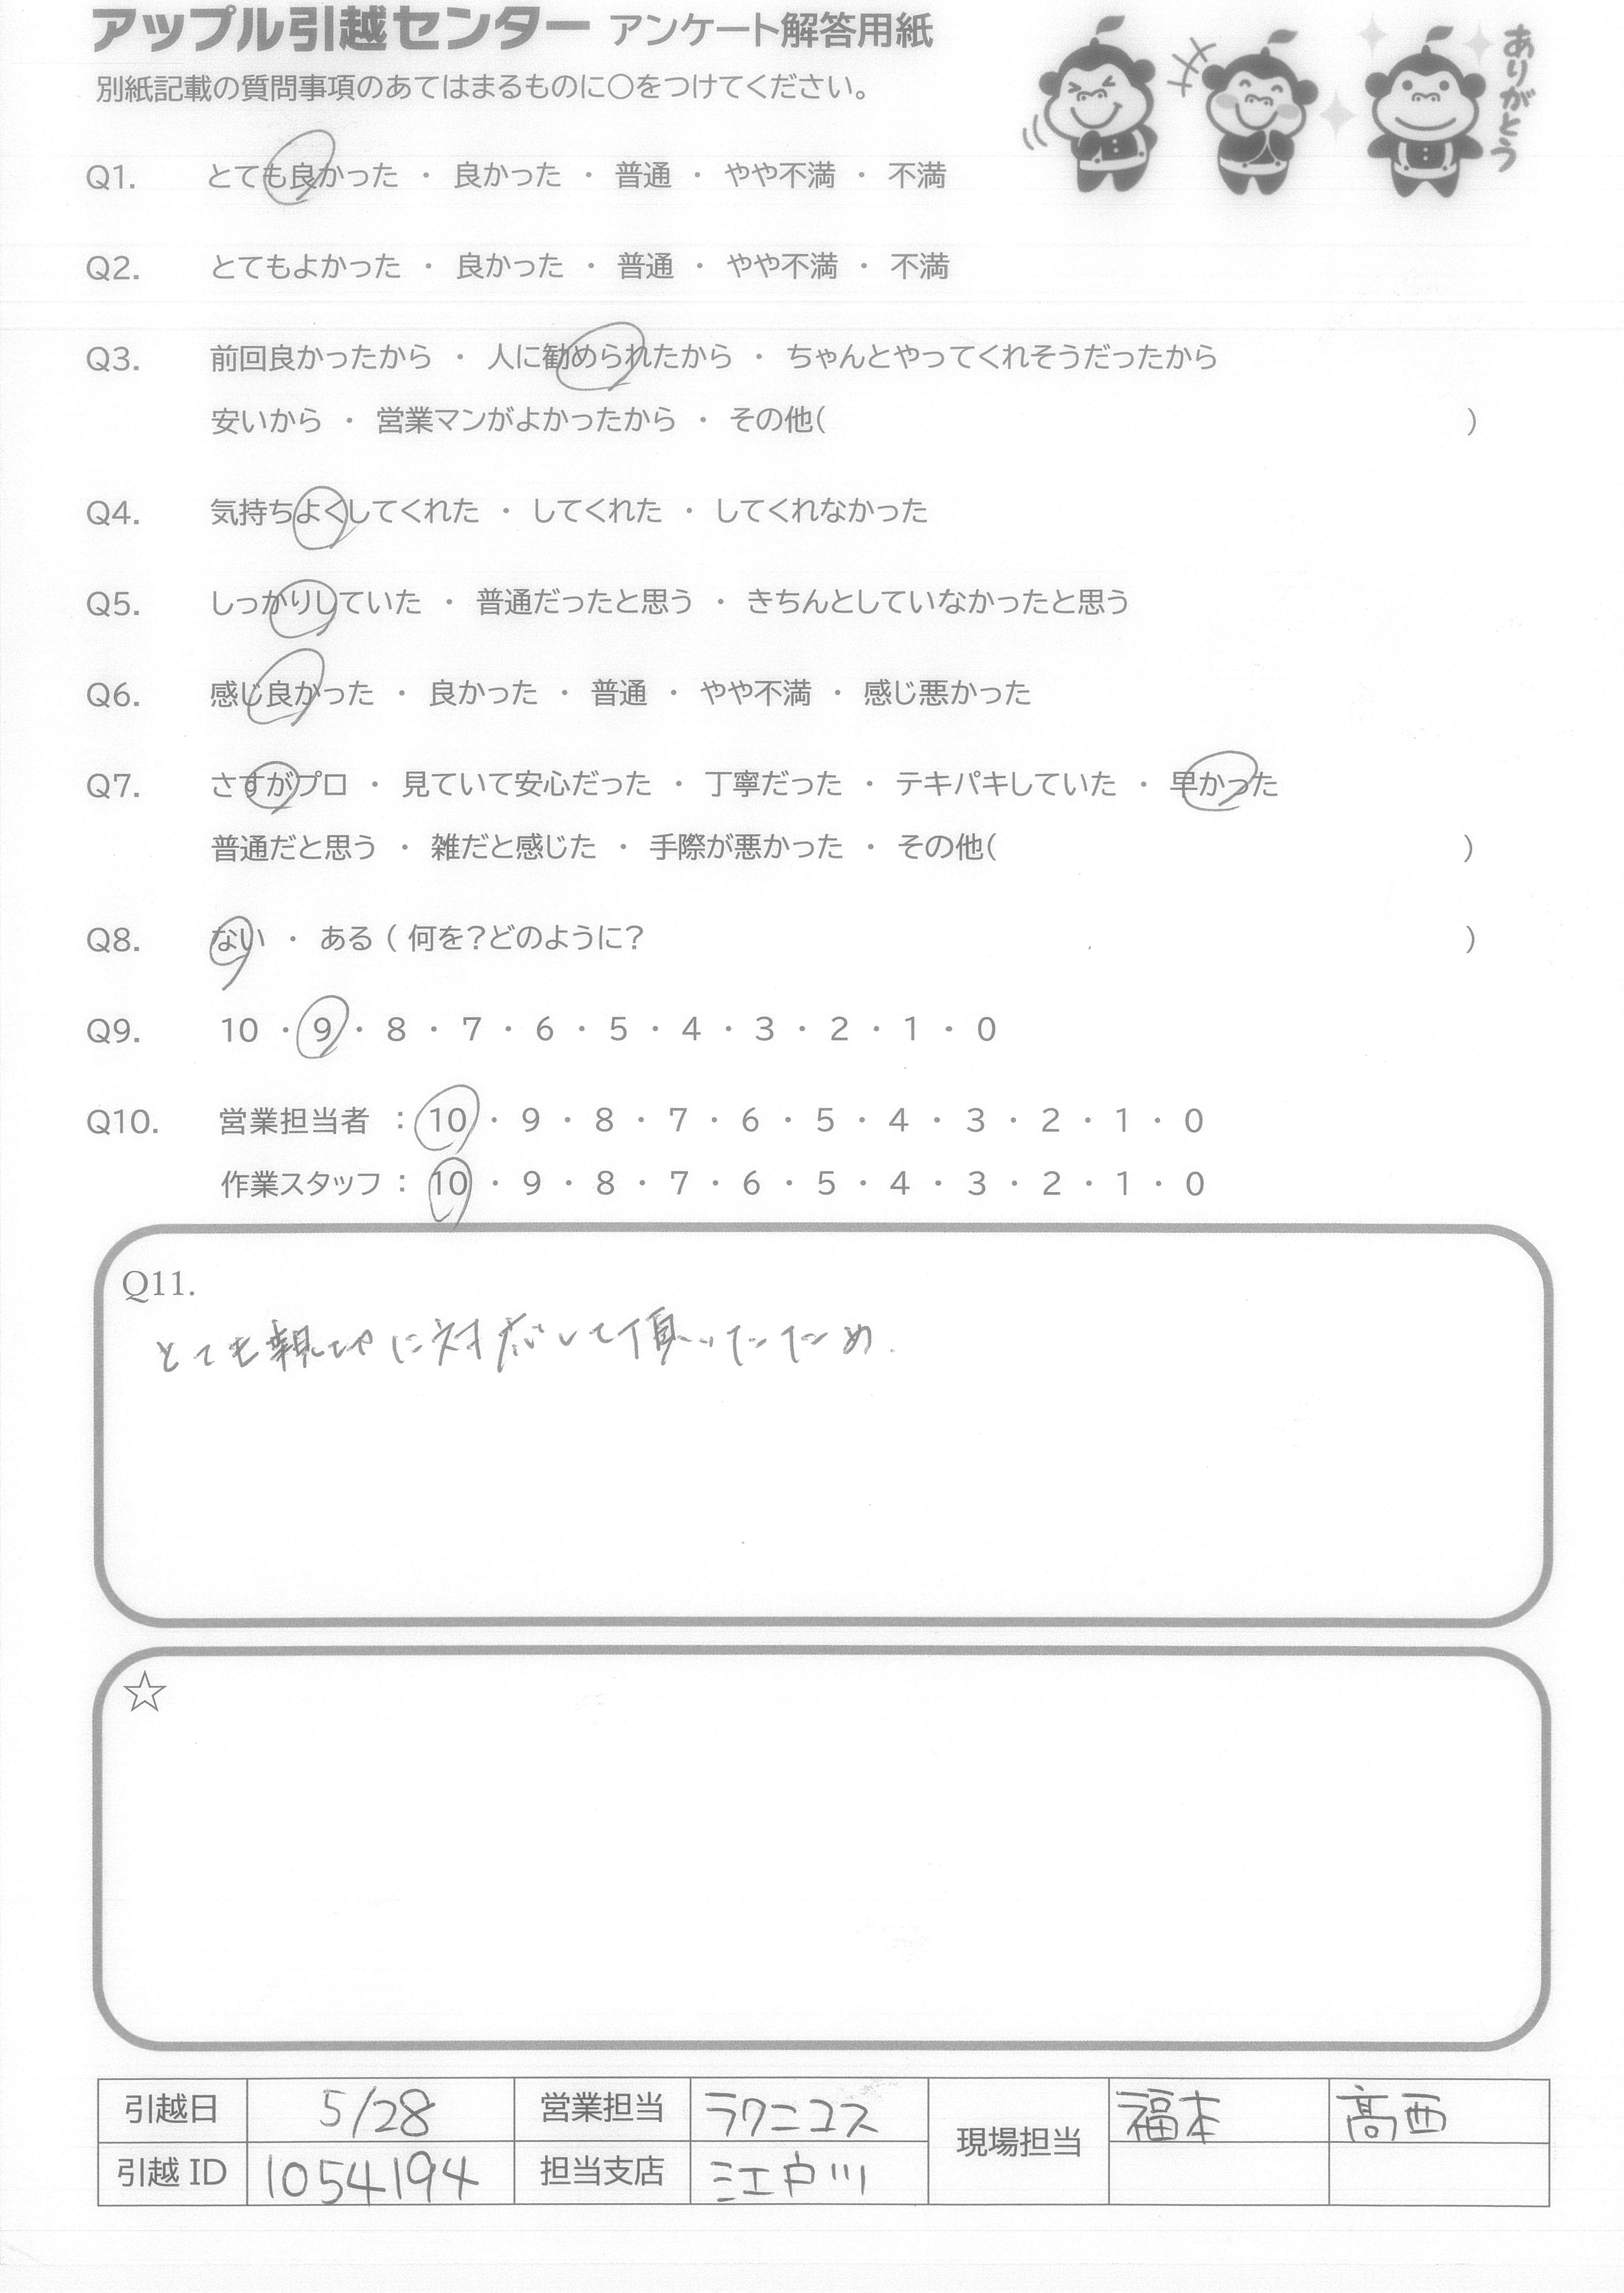 アップル引越センター アンケート解答用紙
別紙記載の質問事項のあてはまるものに○をつけてください。
ありがとう
Q1. とても良かった ・ 良かった ・ 普通 ・ やや不満 ・ 不満
Q2. とてもよかった ・ 良かった ・ 普通 ・ やや不満 ・ 不満
Q3. 前回良かったから ・ 人に勧められたから ・ ちゃんとやってくれそうだったから
安いから ・ 営業マンがよかったから ・ その他( )
Q4. 気持ちよくしてくれた ・ してくれた ・ してくれなかった
Q5. しっかりしていた ・ 普通だったと思う ・ きちんとしていなかったと思う
Q6. 感じ良かった ・ 良かった ・ 普通 ・ やや不満 ・ 感じ悪かった
Q7. さすがプロ ・ 見ていて安心だった ・ 丁寧だった ・ テキパキしていた ・ 早かった
普通だと思う ・ 雑だと感じた ・ 手際が悪かった ・ その他( )
Q8. ない ・ ある ( 何を?どのように? )
Q9. 10 ・ 9 ・ 8 ・ 7 ・ 6 ・ 5 ・ 4 ・ 3 ・ 2 ・ 1 ・ 0
Q10. 営業担当者 : 10 ・ 9 ・ 8 ・ 7 ・ 6 ・ 5 ・ 4 ・ 3 ・ 2 ・ 1 ・ 0
作業スタッフ : 10 ・ 9 ・ 8 ・ 7 ・ 6 ・ 5 ・ 4 ・ 3 ・ 2 ・ 1 ・ 0
Q11.
とても親切に対応して頂いたため.
☆
引越日 5/28 営業担当 ラクニコス 現場担当 福本 髙西
引越 ID 1054194 担当支店 江戸川